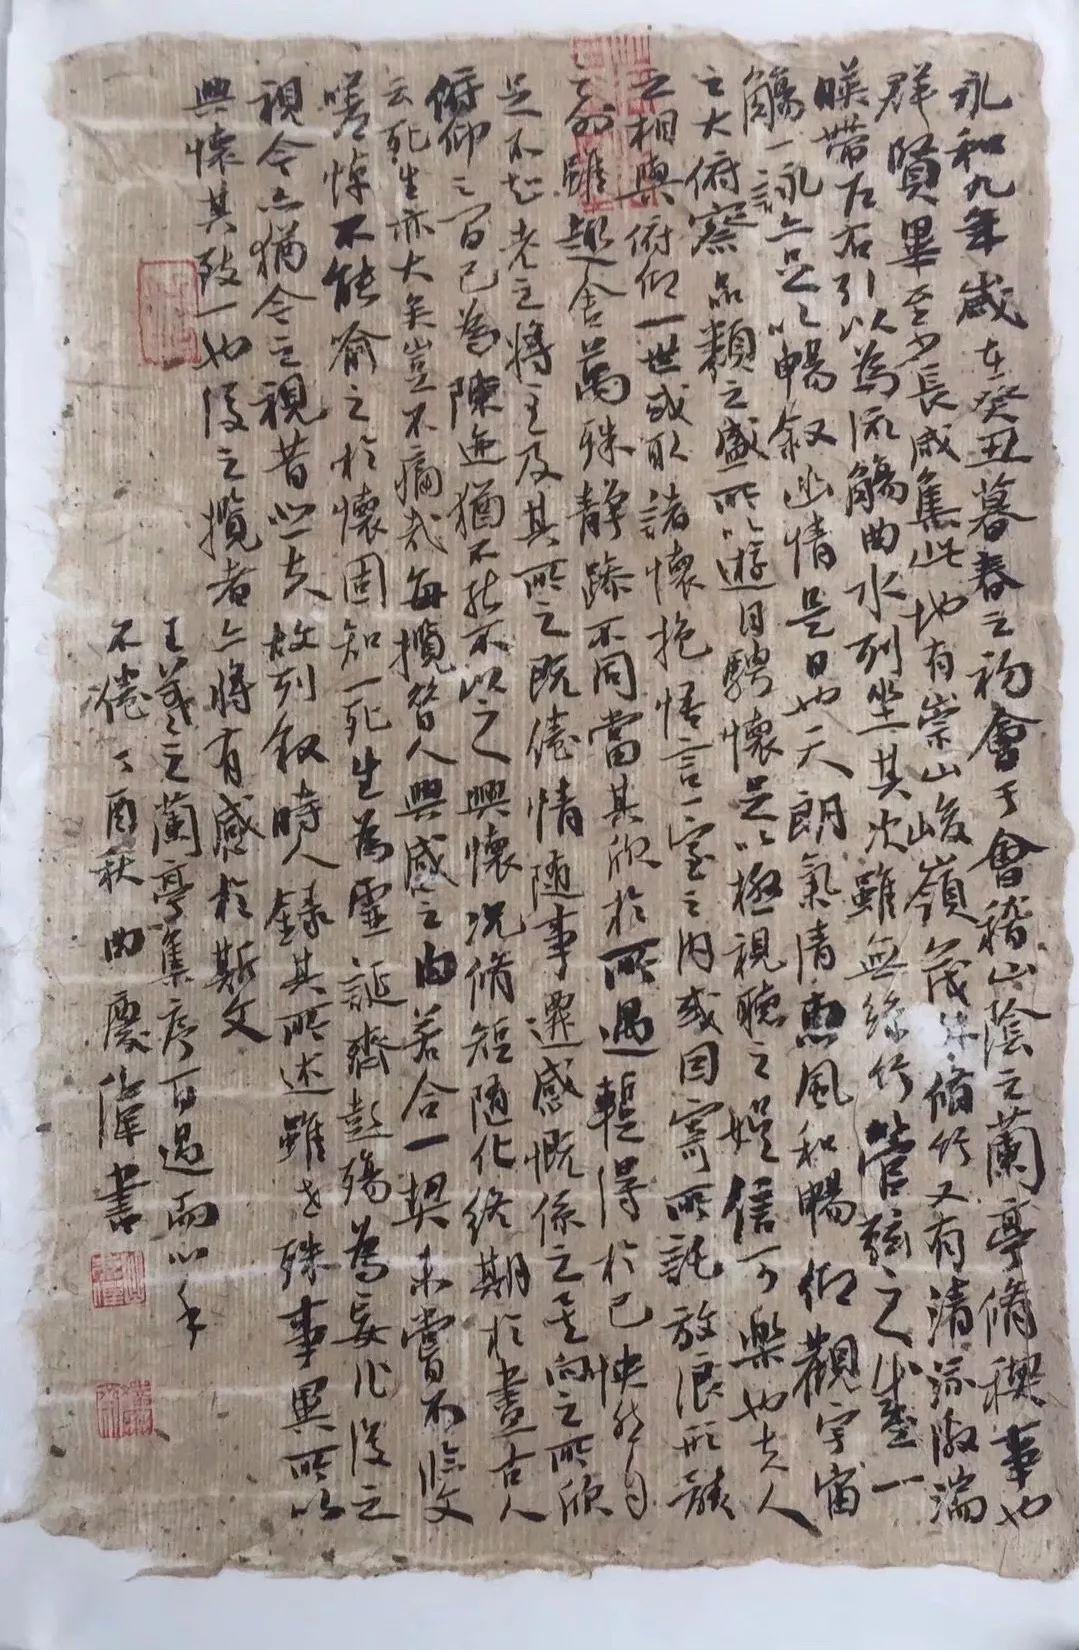 永和九年歲在癸丑暮春之初會于會稽山陰之蘭亭脩稧事也
群賢畢至少長咸集此地有崇山峻嶺茂林脩竹又有清流激湍
暎帶左右引以為流觴曲水列坐其次雖無絲竹管弦之盛一
觴一詠亦足以暢敘幽情是日也天朗氣清惠風和暢仰觀宇宙
之大俯察品類之盛所以遊目騁懷足以極視聽之娛信可樂也夫人
之相與俯仰一世或取諸懷抱悟言一室之內或因寄所託放浪形骸
之外雖趣舍萬殊靜躁不同當其欣於所遇暫得於己快然自
足不知老之將至及其所之既倦情隨事遷感慨係之矣向之所欣
俯仰之間已為陳迹猶不能不以之興懷況脩短隨化終期於盡古人
云死生亦大矣豈不痛哉每攬昔人興感之由若合一契未嘗不臨文
嗟悼不能喻之於懷固知一死生為虛誕齊彭殤為妄作後之
視今亦猶今之視昔悲夫故列敘時人錄其所述雖世殊事異所以
興懷其致一也後之攬者亦將有感於斯文
王羲之蘭亭集序百遇而心手
不倦丁酉秋曲慶偉書